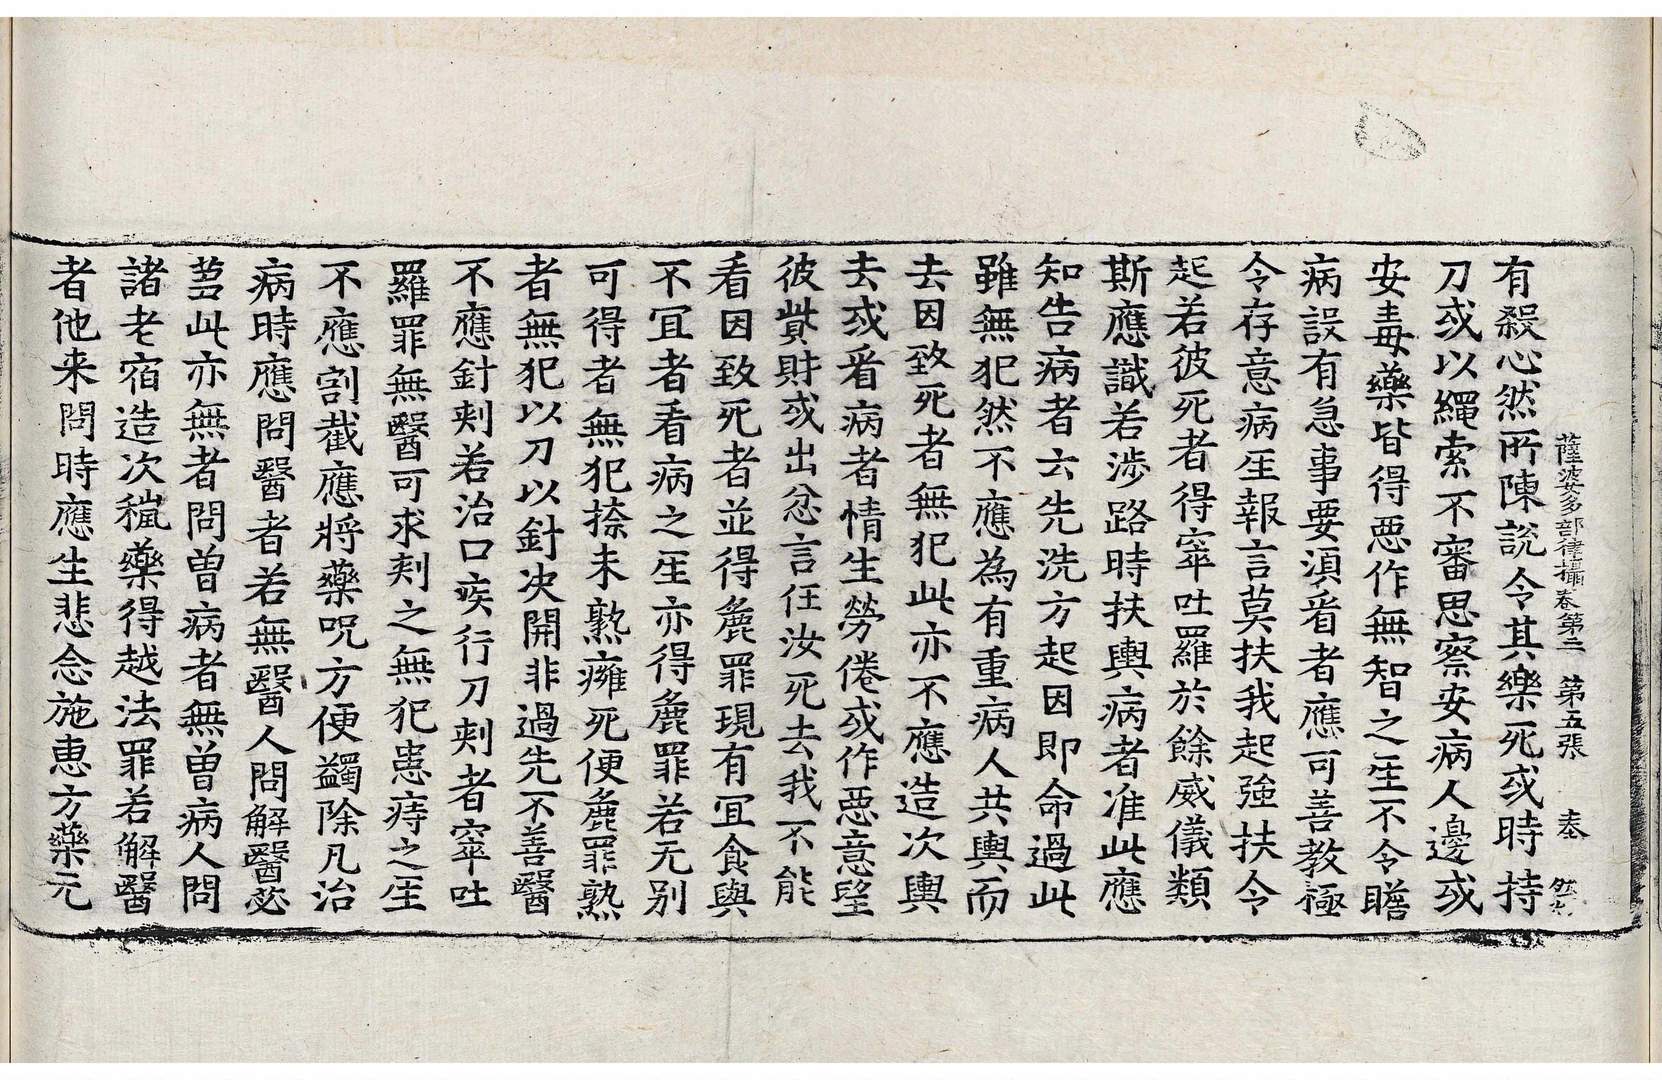 薩婆多部律攝卷第三　第五張　㳟
有殺心然所陳說令其樂死或時持
刀或以繩索不審思察安病人邊或
安毒藥皆得惡作無智之𤯔不令瞻
病設有急事要湏看者應可善教極
令存意病𤯔報言莫扶我起強扶令
起若彼死者得窣吐羅於餘威儀類
斯應識若涉路時扶輿病者准此應
知告病者云先洗方起因即命過此
雖無犯然不應為有重病人共輿而
去因致死者無犯此亦不應造次輿
去或看病者情生勞倦或作惡意望
彼貲財或出忿言任汝死去我不能
看因致死者並得麁罪現有冝食與
不冝者看病之𤯔亦得麁罪若无別
可得者無犯捺未熟癰死便麁罪熟
者無犯以刀以針决開非過先不善醫
不應針刾若治口疾行刀刾者窣吐
羅罪無醫可求刾之無犯患痔之𤯔
不應割截應將藥呪方便蠲除凡治
病時應問醫者若無醫人問解醫苾
蒭此亦無者問曽病者無曽病人問
諸老宿造次𥝠藥得越法罪若解醫
者他来問時應生悲念施惠方藥元